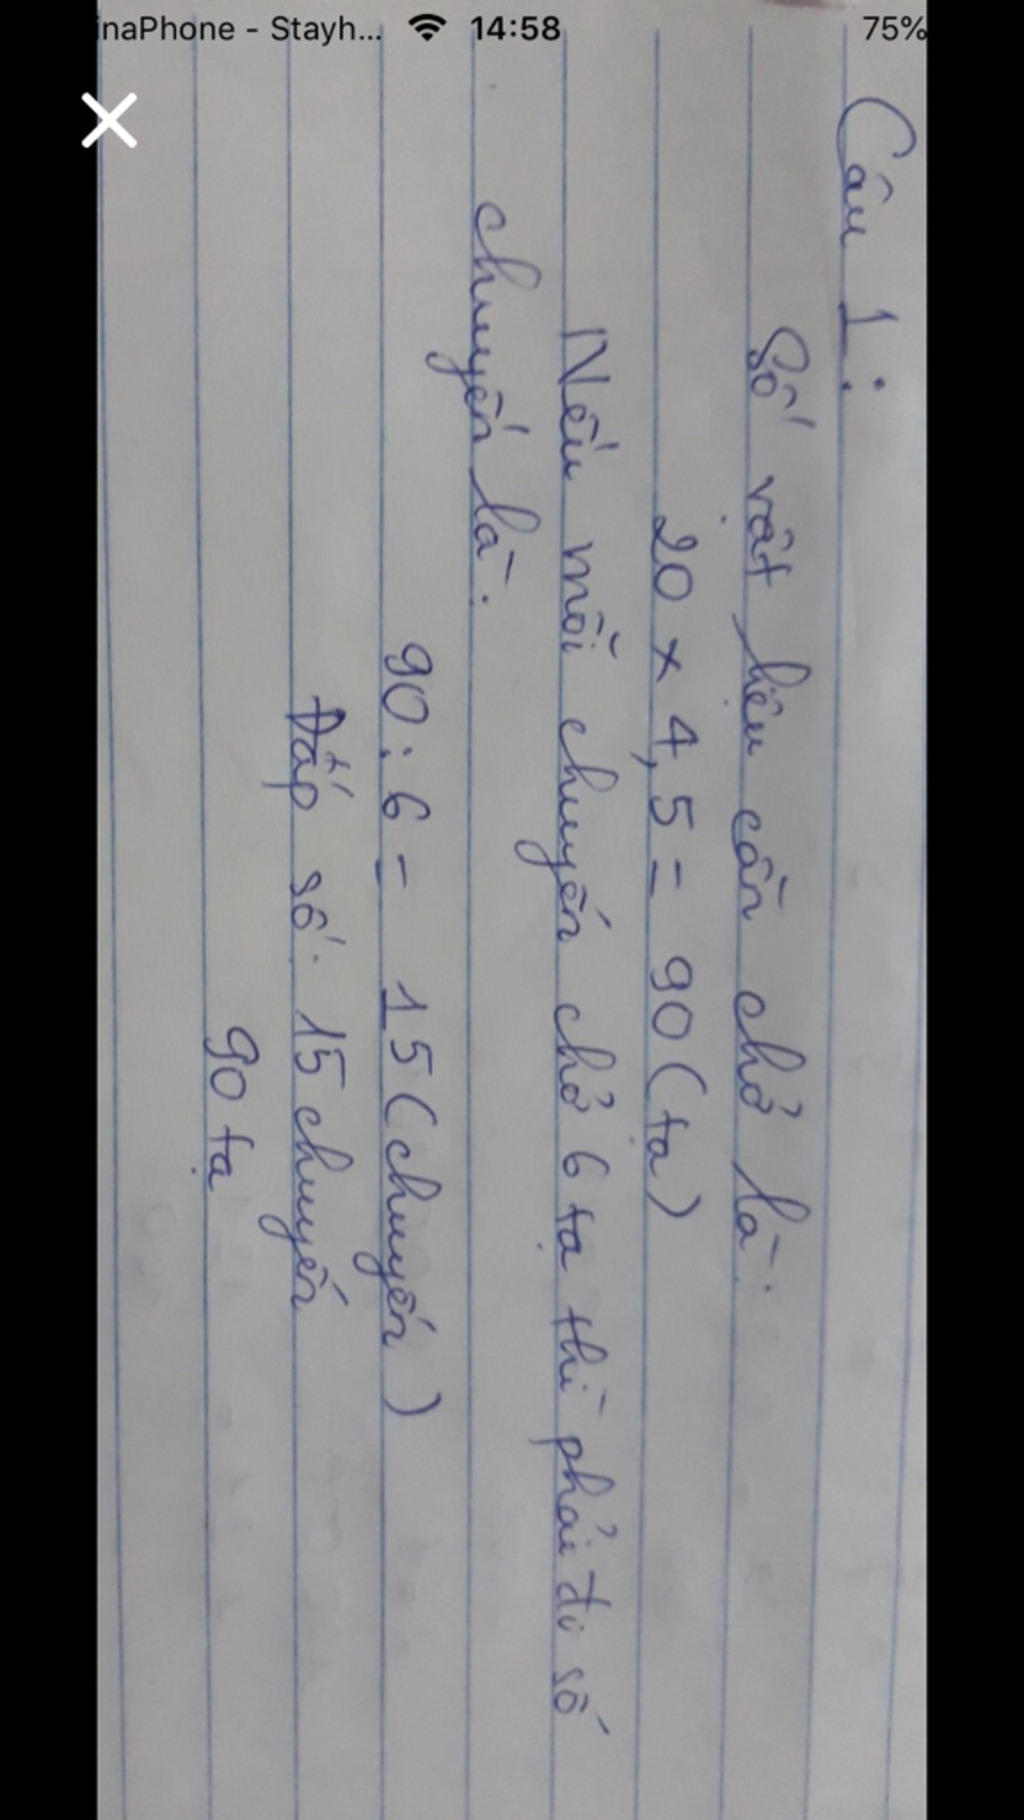 inaPhone - Stayh... 14:58 75%
Câu 1:
Số vật liệu cần chở là:
20 x 4,5 = 90 (tạ)
Nếu mỗi chuyến chở 6 tạ thì phải đi số
chuyến là:
90 : 6 = 15 (chuyến)
Đáp số: 15 chuyến
90 tạ